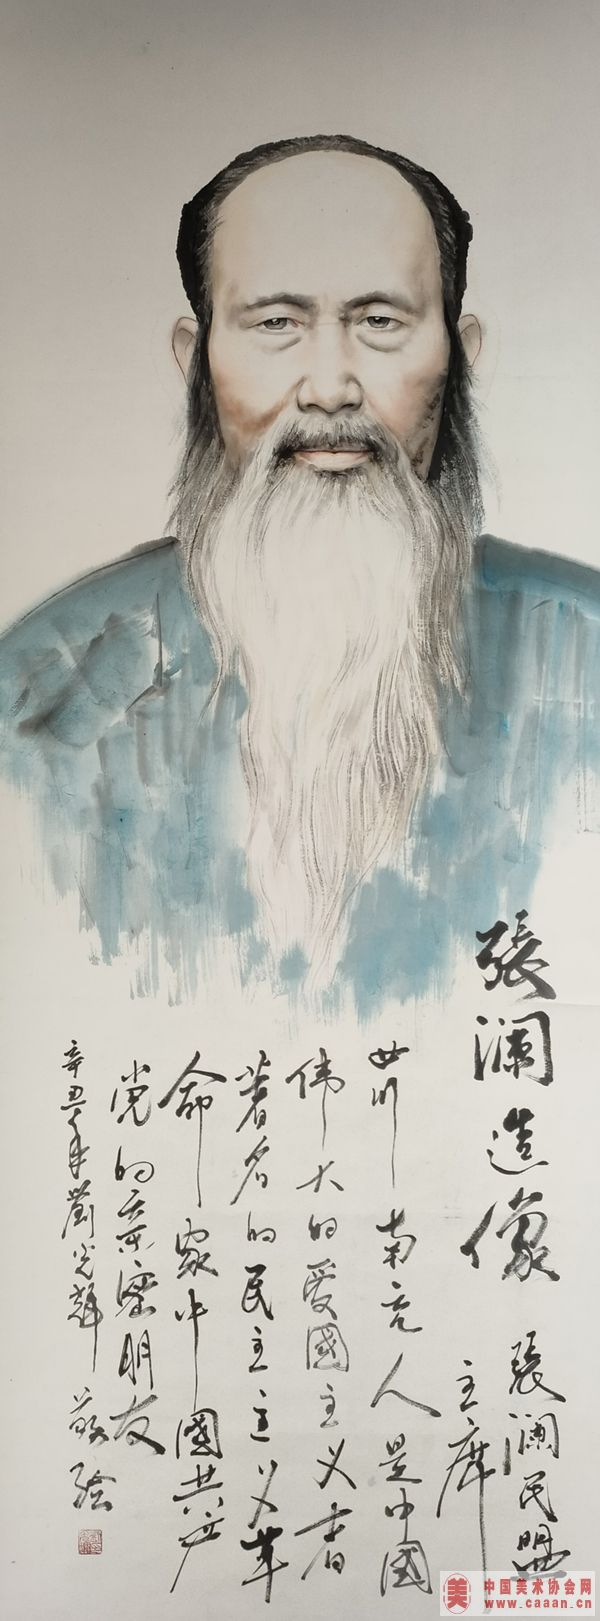 張澜造像 張澜民盟
主席
四川南充人是中國
伟大的爱國主义者
著名的民主主义革
命家中國共产
党的亲密朋友
辛丑年劉光輝敬绘
美
中国美术协会网
www.caaan.cn